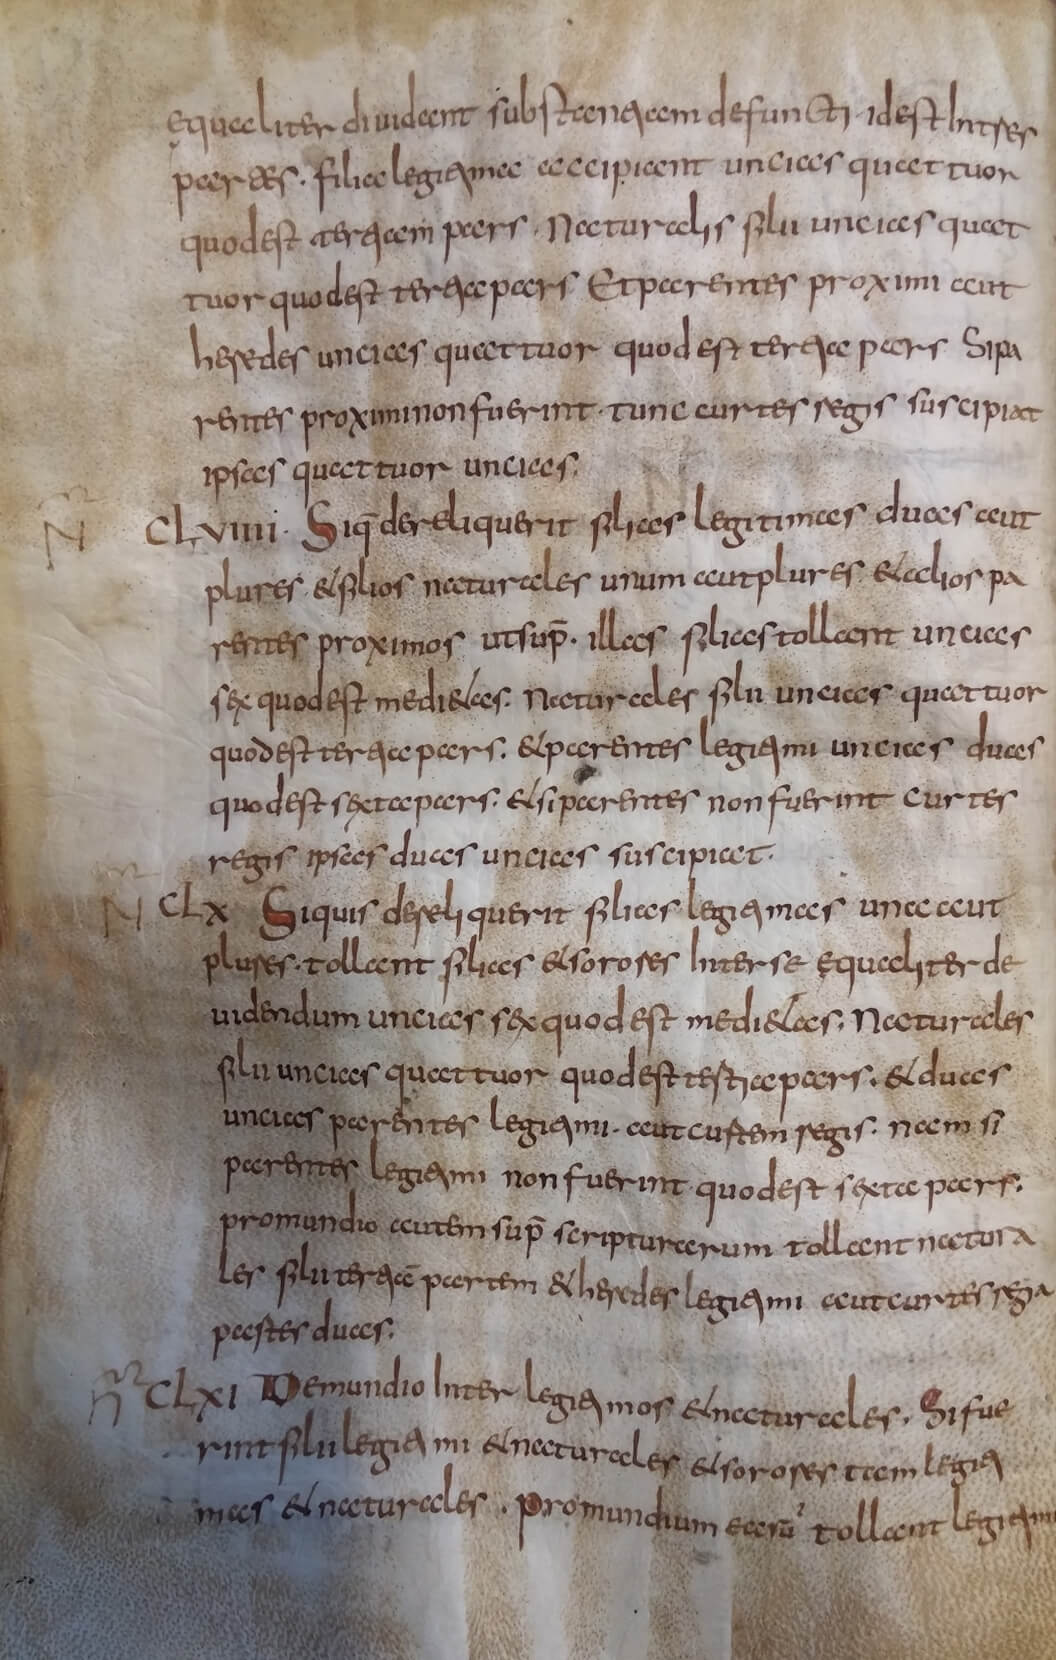 ęqualiter diuidant substantiam defuncti · idest Interes
pares · filia legitima accipiant uncias quattuor
quodest tertiam pars · Naturalis filii uncias quat
tuor quodest tertia pars Et parentes proximi aut
heredes uncias quattuor quod est tertia pars Si pa
rentes proximi non fuerint · tunc curtes regis suscipiat
ipsas quattuor uncias;
CLVIIII · Siq̄ dereliquerit filias legitimas duas aut
plures · & filios naturales unum aut plures · & alios pa
rentes proximos ut sup̄ · illas filias tollant uncias
sex quodest medi&as · Naturales filii uncias quattuor
quodest tertia pars · & parentes legitimi uncias duas
quodest sexta pars · & si parentes non fuerint curtes
regis ipsas duas uncias suscipiat ·
CLX Siquis dereliquerit filias legitimas una aut
plures · tollant filias & sorores Inter se ęqualiter de
uidendum uncias sex quod est medi&as; Naturales
filii uncias quattuor quodest testia pars · & duas
uncias parentes legitimi · aut curtem regis · nam si
parentes legitimi non fuerint quodest sexta pars;
pro mundio autem sup̄ scripturarum tollant natura
les filii tertiā partem & heredes legitimi aut curtes regi
pastes duas;
CLXI De mundio Inter legitimos & naturales · Si fue
rint filii legitimi & naturales & sorores tam legiti
mas & naturales · Pro mundium earū tollant legitimi